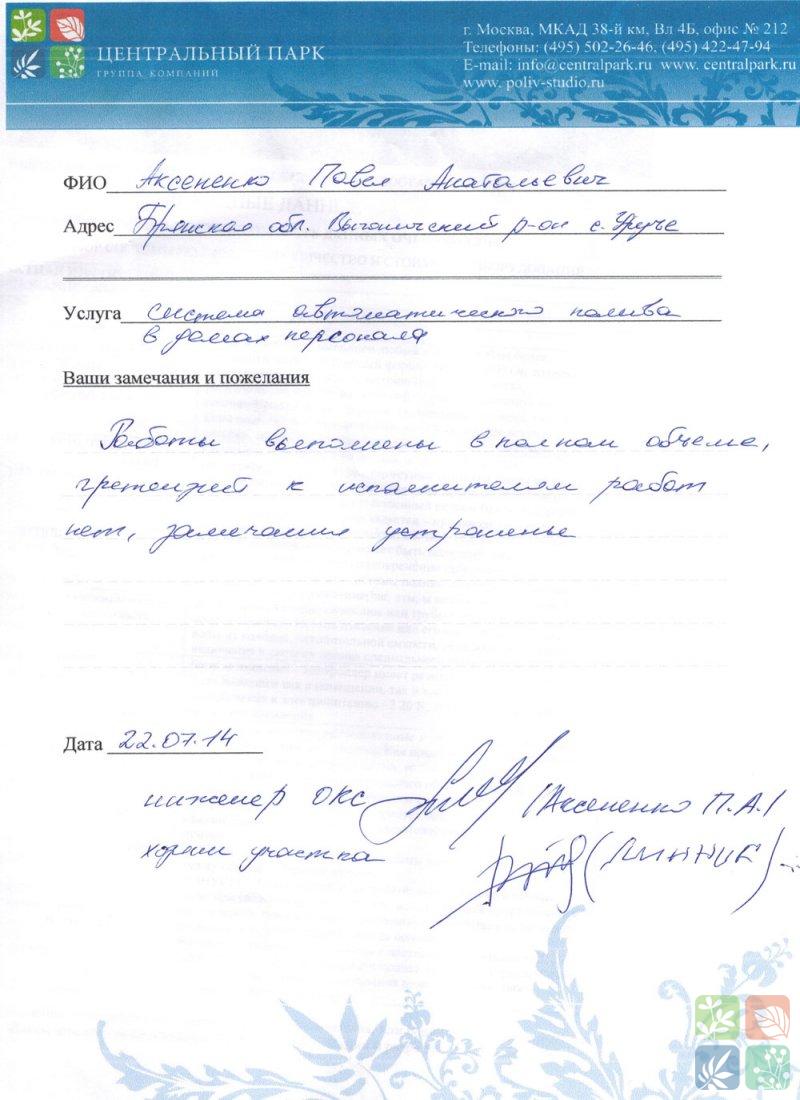 ЦЕНТРАЛЬНЫЙ ПАРК
ГРУППА КОМПАНИЙ
г. Москва, МКАД 38-й км, Вл 4Б, офис № 212
Телефоны: (495) 502-26-46, (495) 422-47-94
E-mail: info@centralpark.ru www. centralpark.ru
www. poliv-studio.ru
ФИО Аксененко Павел Анатольевич
Адрес Брянская обл. Выгоничский р-он с. Уручье
Услуга система автоматического полива
в домах персонала
Ваши замечания и пожелания
Работы выполнены в полном объеме,
претензий к исполнителям работ
нет, замечания устранены
Дата 22.07.14
инженер ОКС (Аксененко П.А.)
участка (Линник)